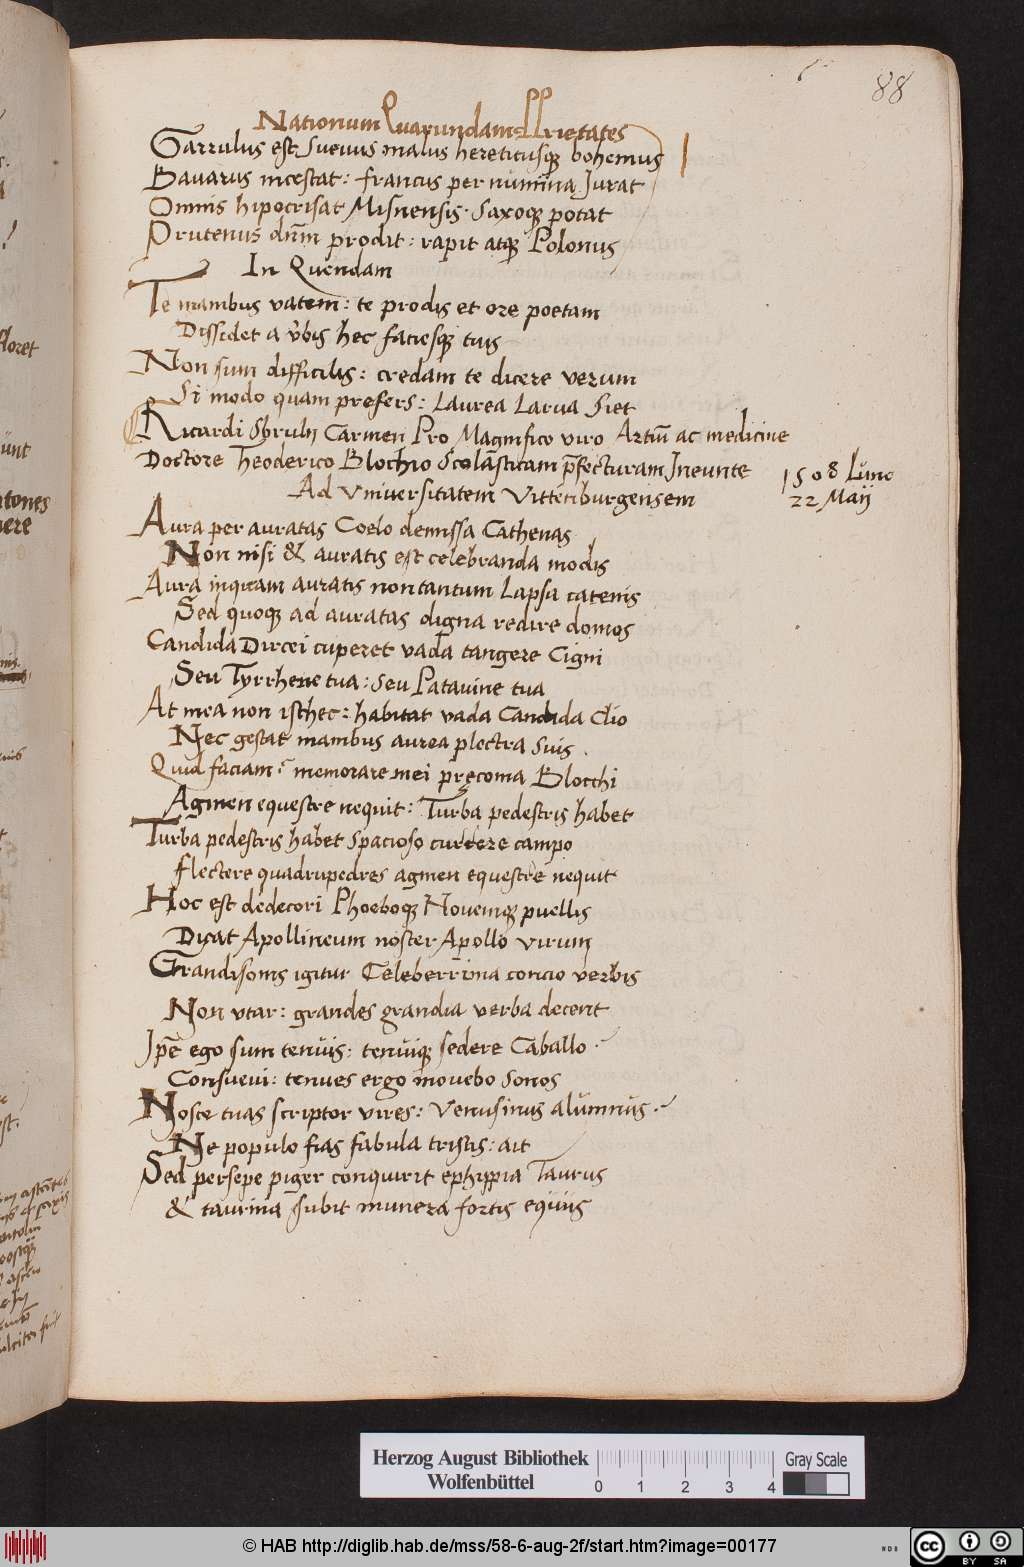 88
Nationum Quarundam PPrietates
Garrulus est Sueuus malus hereticusque bohemus
Bauarus incestat: francus per numina Jurat
Omnis hipocrisat Misnensis. Saxoque potat
Prutenus dnm prodit: rapit atque Polonus
In Quendam
Te manibus vatem: te prodis et ore poetam
Dissidet a vbis hec faciesque tuis
Non sum difficilis: credam te dicere verum
Si modo quam prefers: Laurea Larua Siet
Ricardi Sbrulij Carmen Pro Magnifico viro Artiu ac medicine
Doctore Theoderico Blochio Scolasticam pfecturam Ineunte
1508 Lune
22 Maij
Ad Vniuersitatem Vittenburgensem
Aura per auratas Coelo demissa Cathenas
Non nisi & auratis est celebranda modis
Aura inquam auratis non tantum Lapsa catenis
Sed quoque ad auratas digna redire domos
Candida Dircei cuperet vada tangere Cigni
Seu Tyrrhene tua: seu Patauine tua
At mea non isthec: habitat vada Candida Clio
Nec gestat manibus aurea plectra suis.
Quid faciam? memorare mei pręconia Blocchi
Agmen equestre nequit: Turba pedestris habet
Turba pedestris habet spacioso currere campo
flectere quadrupedres agmen equestre nequit
Hoc est dedecori Phoeboque Nouemque puellis
Dicat Apollineum noster Apollo virum
Grandisonis igitur Celeberrima concio verbis
Non vtar: grandes grandia verba decent
Ipe ego sum tenuis: tenuique sedere Caballo.
Consueui: tenues ergo mouebo sonos
Nosce tuas scriptor vires: Venusinus alumnus.
Ne populo fias fabula tristis: ait
Sed persepe piger conquirit ephippia Taurus
& taurina subit munera fortis equus
Herzog August Bibliothek
Wolfenbüttel
0 1 2 3 4
Gray Scale
© HAB http://diglib.hab.de/mss/58-6-aug-2f/start.htm?image=00177
cc BY SA